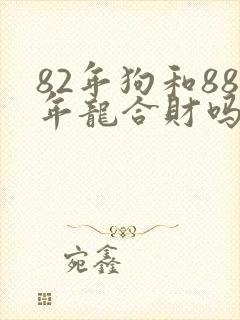 82年狗和88
年龍合財吗
宛鑫